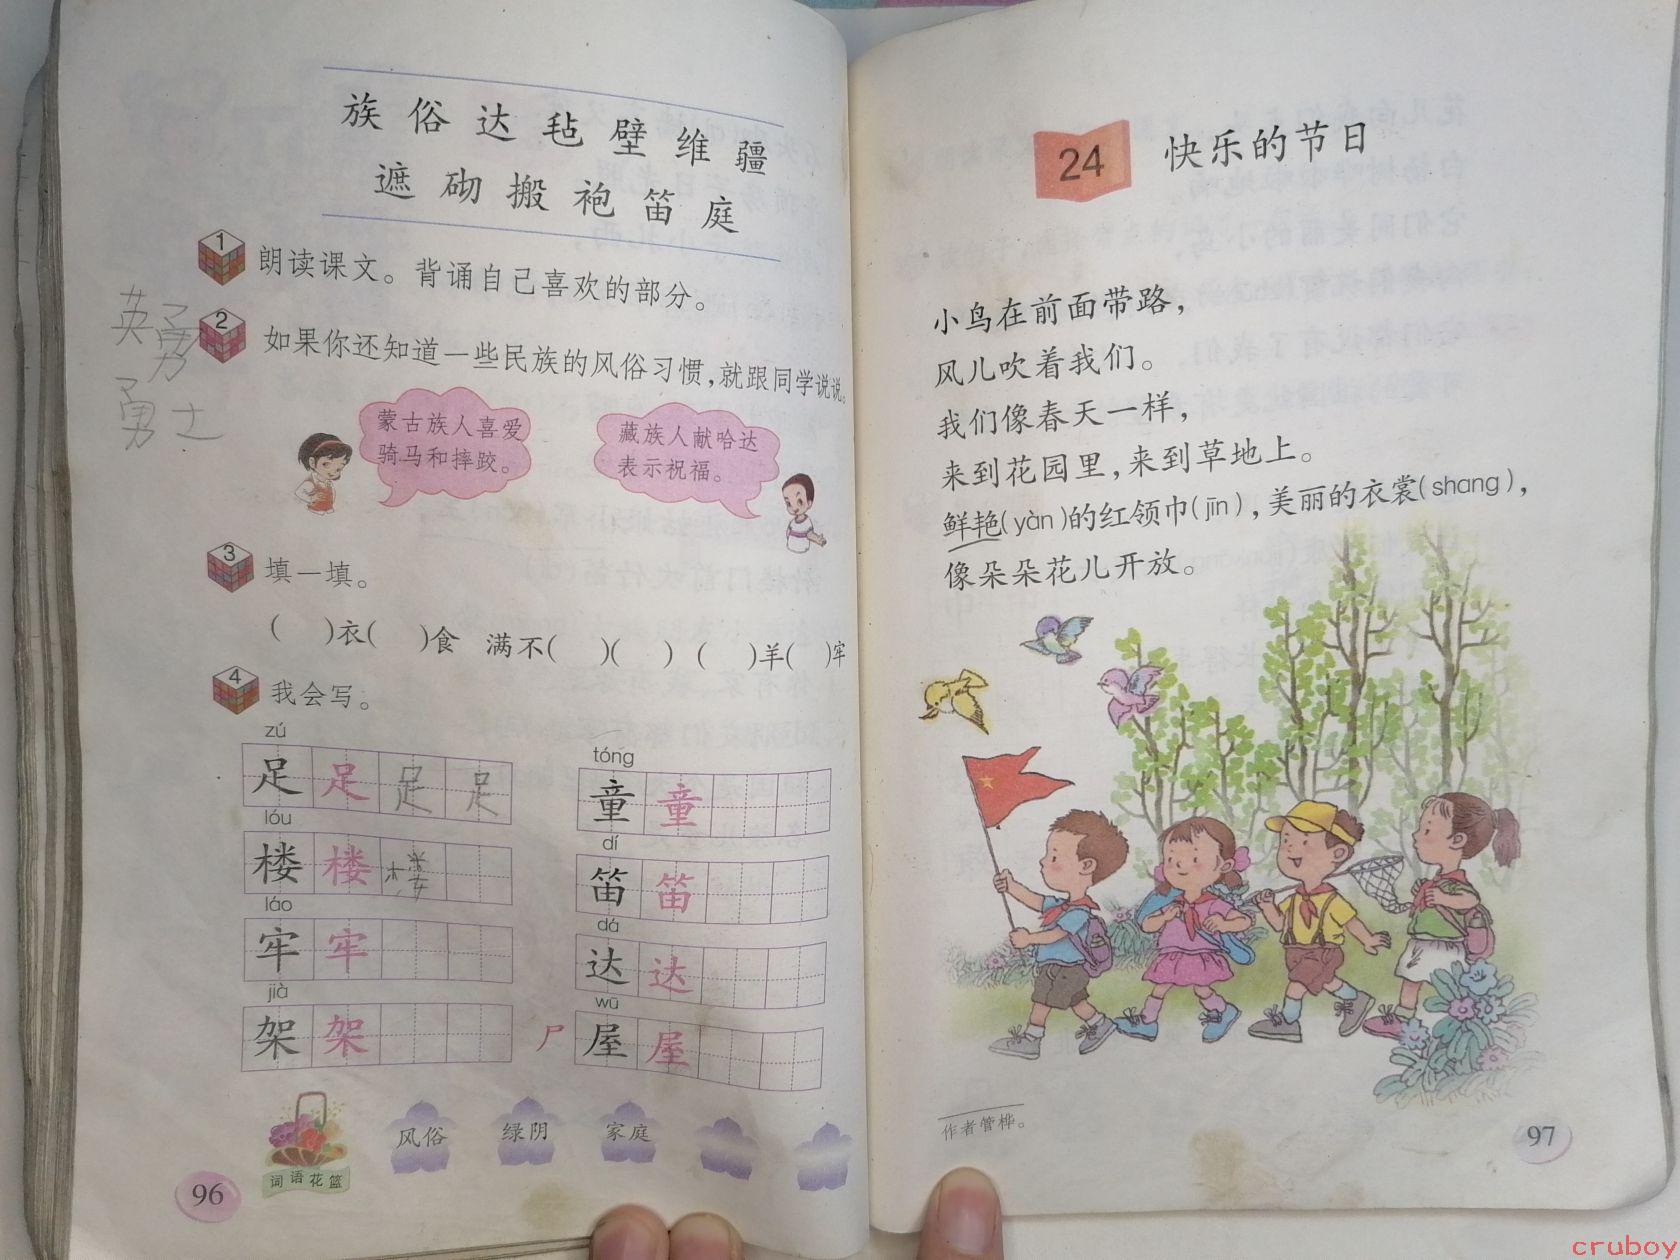 族 俗 达 毡 壁 维 疆
遮 砌 搬 袍 笛 庭
1 朗读课文。背诵自己喜欢的部分。
英勇
勇士
2 如果你还知道一些民族的风俗习惯，就跟同学说说。
蒙古族人喜爱
骑马和摔跤。
藏族人献哈达
表示祝福。
3 填一填。
( )衣( )食 满不( )( ) ( )羊( )牢
4 我会写。
zú
足 足 足 足
lóu
楼 楼 楼
láo
牢 牢
jià
架 架
tóng
童 童
dí
笛 笛
dá
达 达
wū
尸 屋 屋
词语花篮
风俗 绿阴 家庭
96
24 快乐的节日
小鸟在前面带路，
风儿吹着我们。
我们像春天一样，
来到花园里，来到草地上。
鲜艳(yàn)的红领巾(jīn)，美丽的衣裳(shang)，
像朵朵花儿开放。
作者管桦。
97
cruboy